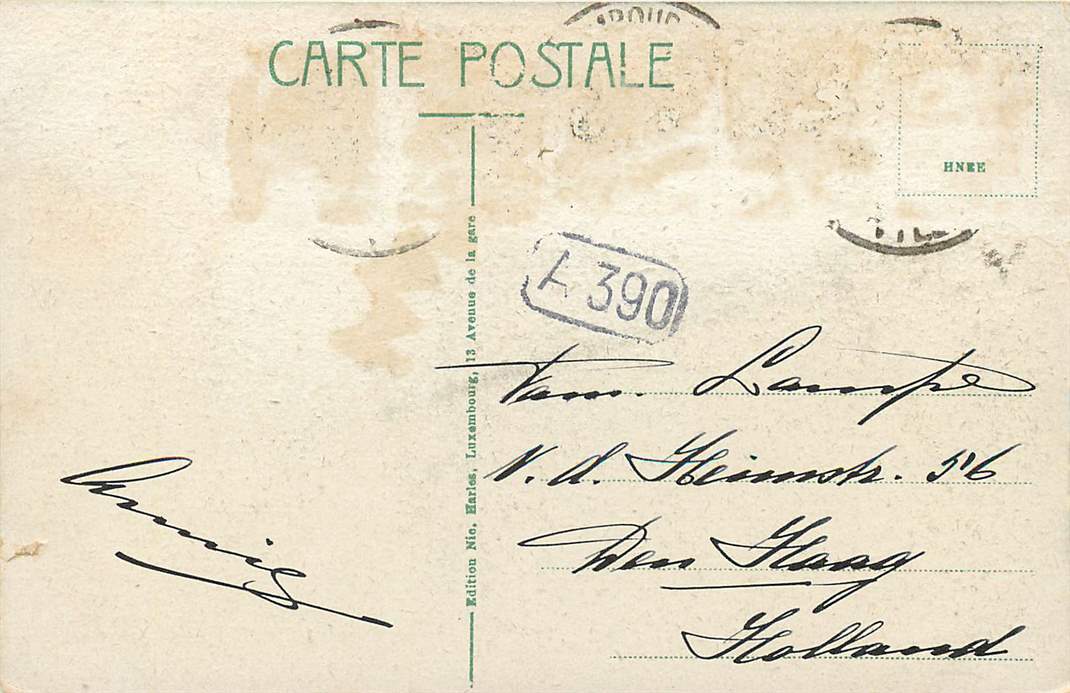 CARTE POSTALE
HNEE
390
Edition Nic. Harles, Luxembourg, 13 Avenue de la gare
Fam. Lampe
V. d. Heimstr. 56
Den Haag
Holland
Annie